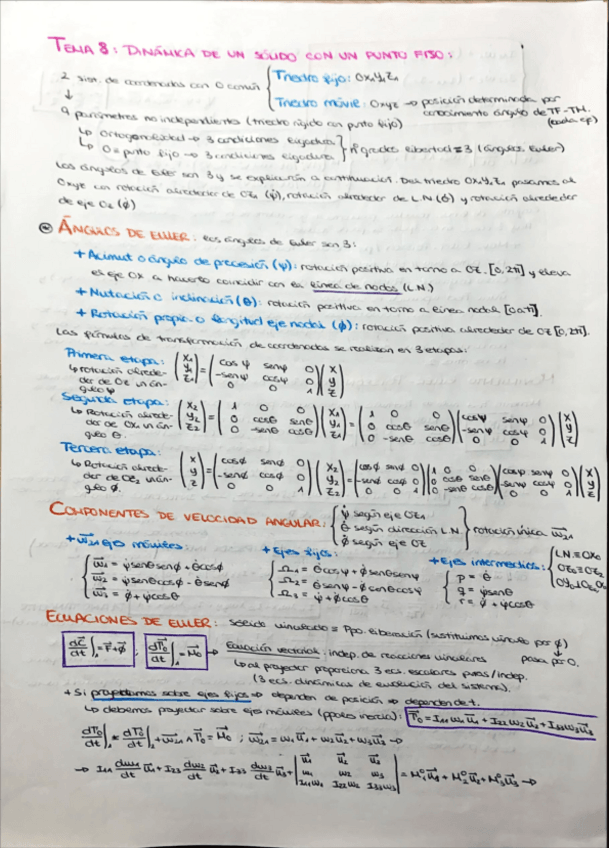 TEMA 8: DINÁMICA DE UN SÓLIDO CON UN PUNTO FIJO:
2 sist. de coordenadas con O común { Triedro fijo: OX₁Y₁Z₁
Triedro móvil: Oxyz → posición determinada por
↓ conocimiento ángulo de TF-TM.
9 parámetros no independientes (triedro rígido con punto fijo)
↳ Ortogonalidad → 3 condiciones ligadura
↳ O = punto fijo → 3 condiciones ligadura } nº grados libertad = 3 (ángulos Euler)
Los ángulos de Euler son 3 y se explicarán a continuación. Del triedro OX₁Y₁Z₁ pasamos al
Oxyz con rotación alrededor de OZ₁ (ψ), rotación alrededor de L.N (θ) y rotación alrededor
de eje Oz (ϕ)
ÁNGULOS DE EULER: Los ángulos de Euler son 3:
+ Acimut o ángulo de precesión (ψ): rotación positiva en torno a OZ. [0, 2π] y lleva
el eje OX a hacerlo coincidir con la línea de nodos (L.N.)
+ Nutación o inclinación (θ): rotación positiva en torno a línea nodal [0,π].
+ Rotación propia o longitud eje nodal (ϕ): rotación positiva alrededor de OZ [0, 2π].
Las fórmulas de transformación de coordenadas se realizan en 3 etapas:
Primera etapa: (x₁ y₁ z₁) = (cosψ senψ 0 / -senψ cosψ 0 / 0 0 1)(x y z)
↳ rotación alrededor de Oz un ángulo ψ
Segunda etapa: (x₂ y₂ z₂) = (1 0 0 / 0 cosθ senθ / 0 -senθ cosθ)(x₁ y₁ z₁) = (1 0 0 / 0 cosθ senθ / 0 -senθ cosθ)(cosψ senψ 0 / -senψ cosψ 0 / 0 0 1)(x y z)
↳ Rotación alrededor de OX₁ un ángulo θ.
Tercera etapa: (x y z) = (cosϕ senϕ 0 / -senϕ cosϕ 0 / 0 0 1)(x₂ y₂ z₂) = (cosϕ senϕ 0 / -senϕ cosϕ 0 / 0 0 1)(1 0 0 / 0 cosθ senθ / 0 -senθ cosθ)(cosψ senψ 0 / -senψ cosψ 0 / 0 0 1)(x y z)
↳ Rotación alrededor de OZ₂ un ángulo ϕ.
COMPONENTES DE VELOCIDAD ANGULAR: { ψ̇ según eje OZ₁
θ̇ según dirección L.N.
ϕ̇ según eje OZ } rotación única ω₂₁
+ ω₂₁ ejes móviles
ω₁ = ψ̇senθsenϕ + θ̇cosϕ
ω₂ = ψ̇senθcosϕ - θ̇senϕ
ω₃ = ϕ̇ + ψ̇cosθ
+ Ejes fijos:
Ω₁ = θ̇cosψ + ϕ̇senθsenψ
Ω₂ = θ̇senψ - ϕ̇senθcosψ
Ω₃ = ψ̇ + ϕ̇cosθ
+ Ejes intermedios: { L.N ≡ OX₂
p = θ̇
q = ψ̇senθ
r = ϕ̇ + ψ̇cosθ
ECUACIONES DE EULER: Sólido vinculado = Ppo. liberación (sustituimos vínculo por ϕ)
pasa por O.
dC/dt|₁ = F + ϕ ; dΓ₀/dt|₁ = M₀ → Ecuación vectorial: indep. de reacciones vinculares
↳ al proyectar proporciona 3 ecs. escalares puras/indep.
(3 ecs. dinámicas de evolución del sistema).
+ Si proyectamos sobre ejes fijos → dependen de posición → dependen de t.
↳ debemos proyectar sobre ejes móviles (ppales inercia): Γ₀ = I₁₁ω₁u₁ + I₂₂ω₂u₂ + I₃₃ω₃u₃
dΓ₀/dt|₁ = dΓ₀/dt|₂ + ω₂₁ ∧ Γ₀ = M₀ ; ω₂₁ = ω₁u₁ + ω₂u₂ + ω₃u₃ →
→ I₁₁ dω₁/dt u₁ + I₂₂ dω₂/dt u₂ + I₃₃ dω₃/dt u₃ + |u₁ u₂ u₃ / ω₁ ω₂ ω₃ / I₁₁ω₁ I₂₂ω₂ I₃₃ω₃| = M₁u₁ + M₂u₂ + M₃u₃ →